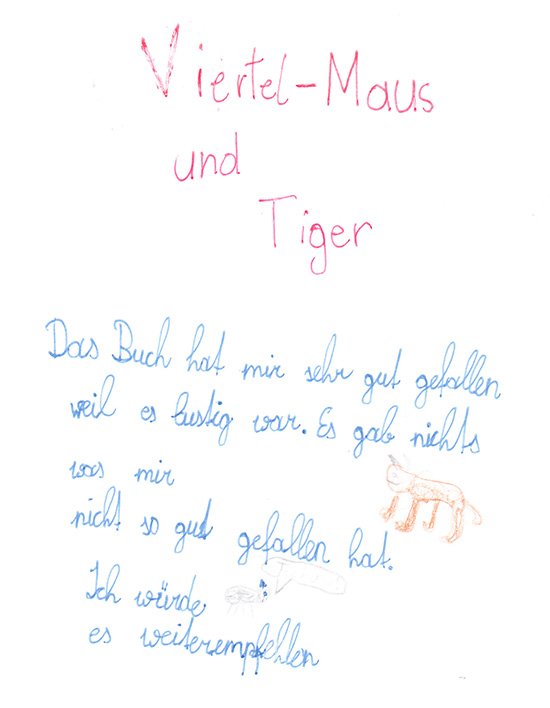 Viertel-Maus
und
Tiger
Das Buch hat mir sehr gut gefallen
weil es lustig war. Es gab nichts
was mir
nicht so gut gefallen hat.
Ich würde
es weiterempfehlen